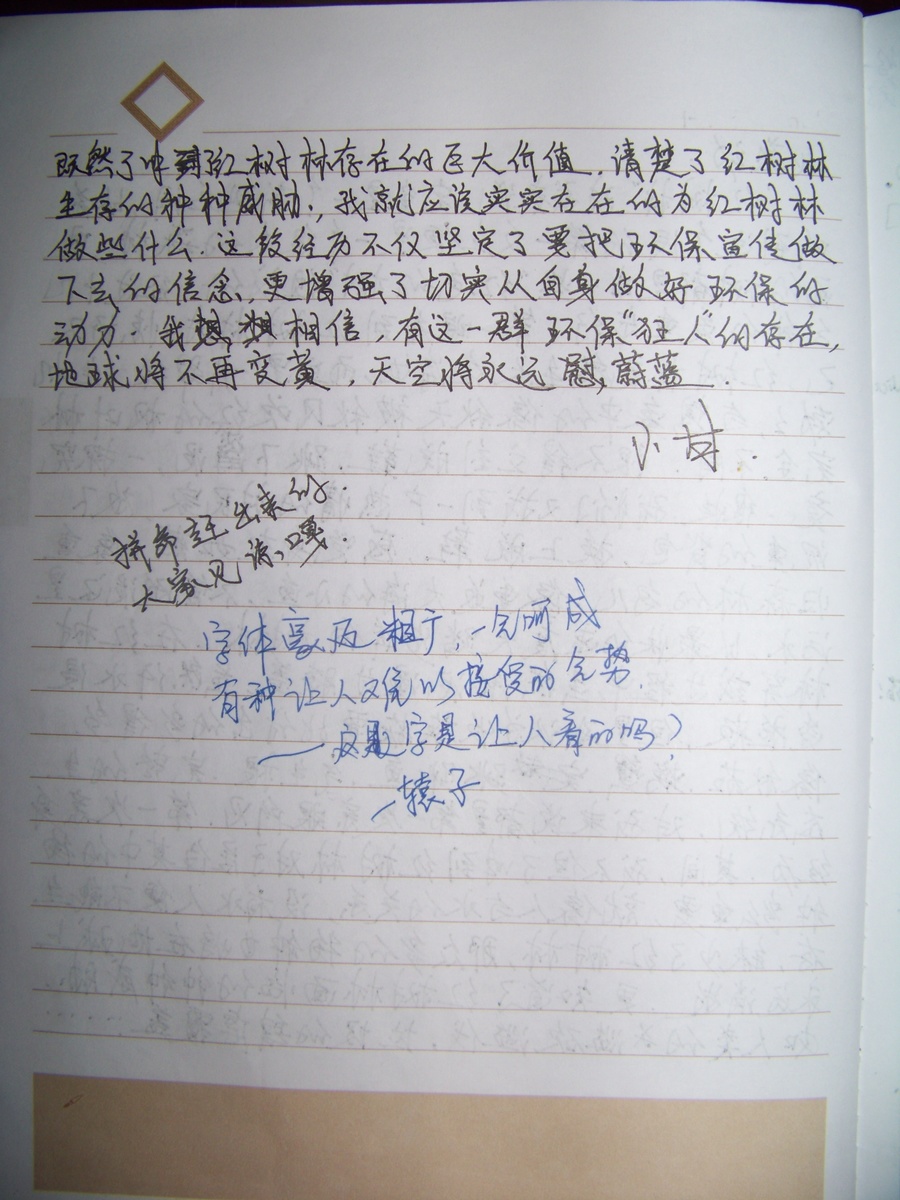 既然了解到红树林存在的巨大价值,请楚了红树林
生存的种种威胁,我就应该实实在在的为红树林
做些什么.这段经历不仅坚定了要把环保宣传做
下去的信念,更增强了切实从自身做好环保的
动力.我想相信,有这一群环保"狂人"的存在,
地球将不再变黄,天空将永远蔚蓝.
小甘.
出来的.
大家见谅,嘎.
字体豪迈粗广,一气呵成
有种让人难以接受的气势.
——这是字是让人看的吗?
—猿子